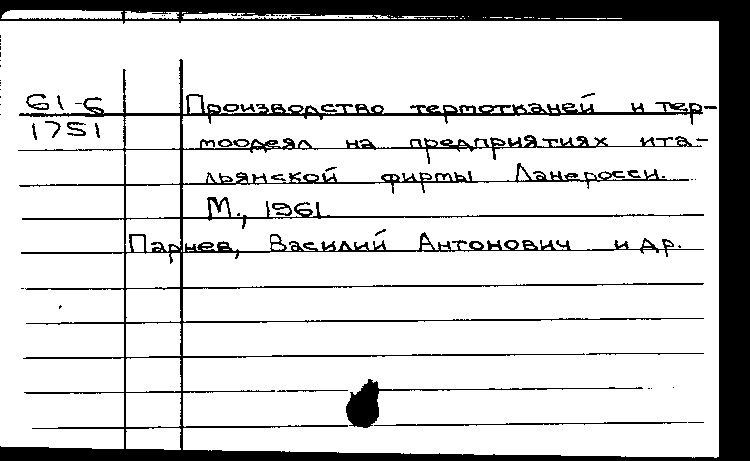 61-5 Производство термотканей и тер-
1751 моодеял на предприятиях ита-
льянской фирмы Ланеросси.
М., 1961
Парнев, Василий Антонович и др.